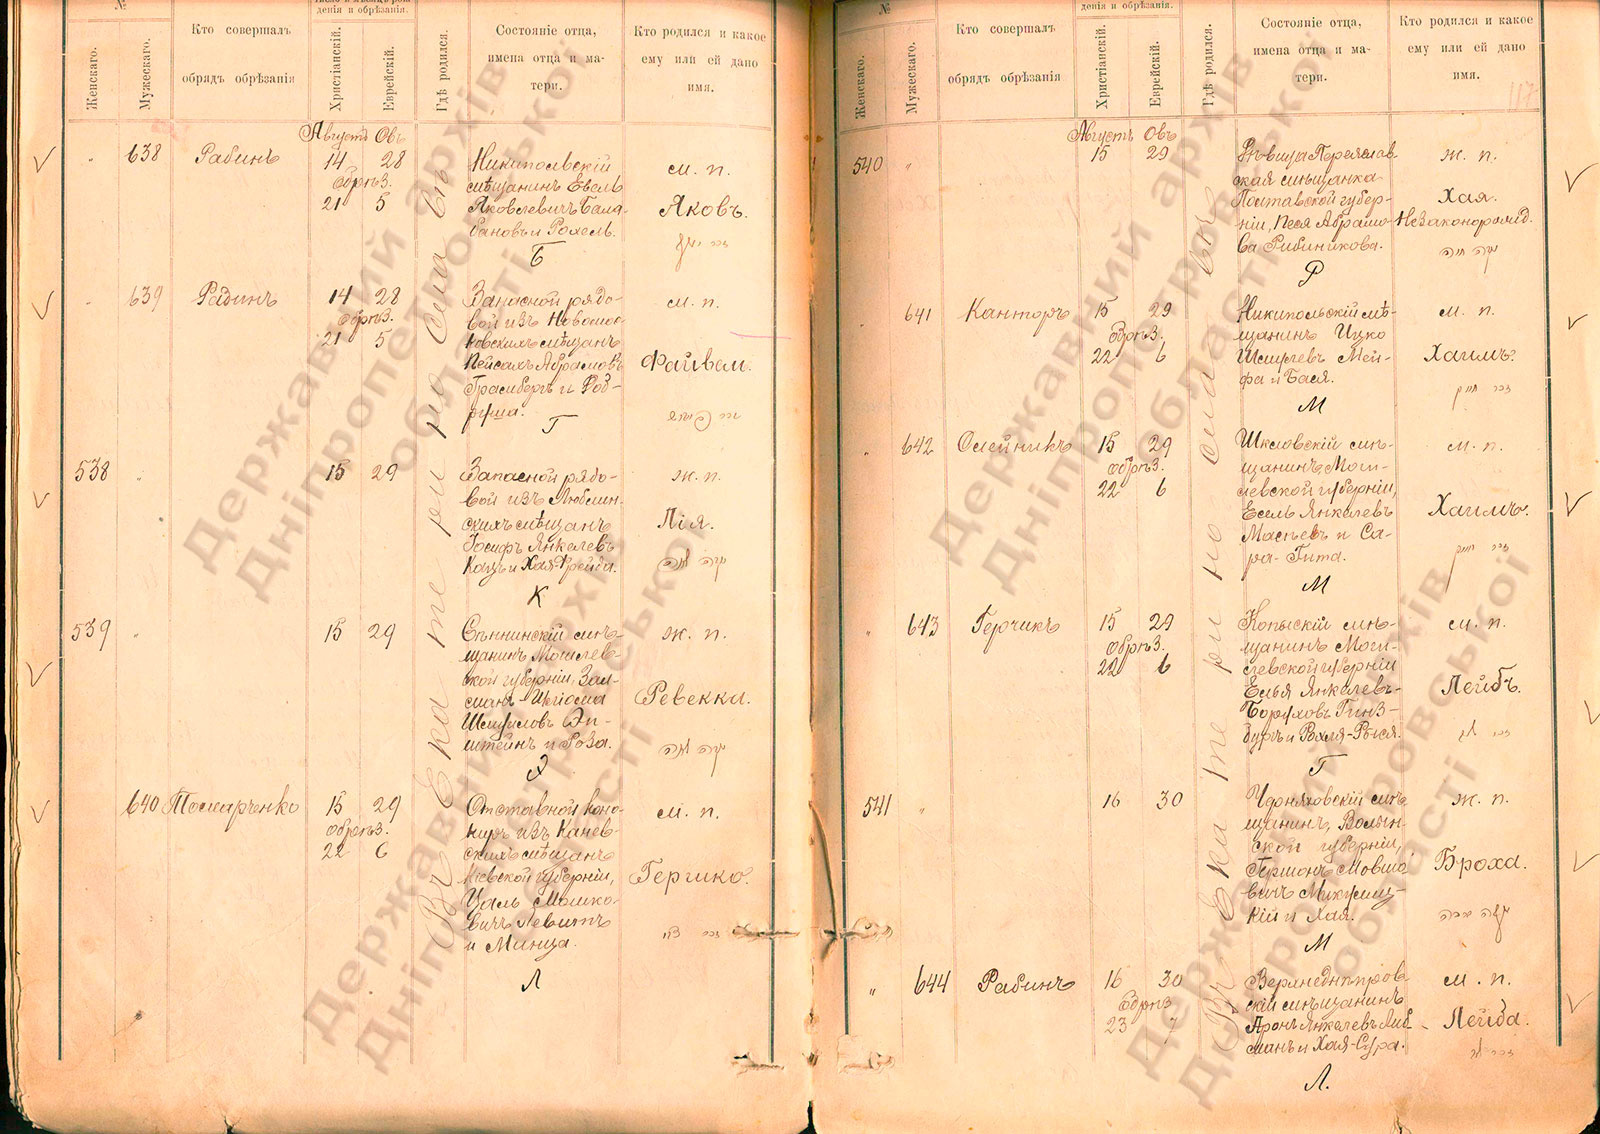 №
Женскаго.
Мужескаго.
Кто совершалъ
обрядъ обрѣзанія
дѣнія и обрѣзанія.
Христіанскій.
Еврейскій.
Гдѣ родился.
Состояніе отца,
имена отца и ма-
тери.
Кто родился и какое
ему или ей дано
имя.
Августъ Овъ
" 638 Рабинъ 14 28
Обрѣз.
21 5
Никипольскій
мѣщанинъ Евель
Яковлевичъ Бала-
бановъ и Рохель.
Б
м. п.
Яковъ.
" 639 Рабинъ 14 28
Обрѣз.
21 5
Запасной рядо-
вой изъ Новомос-
ковскихъ мѣщанъ
Пейсахъ Абрамовъ
Грамбергъ и
Г
м. п.
Файвел.
538 " 15 29
Запасной рядо-
вой изъ Люблин-
скихъ мѣщанъ
Іосифъ Янкелевъ
Кацъ и Хая-Фрейда.
К
ж. п.
Лія.
539 " 15 29
Сѣннинскій мѣ-
щанинъ Могилев-
ской губерніи, Зал-
манъ
Шмуиловъ Эп-
штейнъ и Роза.
Э
ж. п.
Ревекка.
640 Томарченко 15 29
обрѣз.
22 6
Отставной кано-
ниръ изъ Канев-
скихъ мѣщанъ
Кіевской губерніи,
Цаль Мошко-
вичъ Левитъ
и Минца.
Л
м. п.
Гершко.
Въ Екатеринославѣ
№
Женскаго.
Мужескаго.
Кто совершалъ
обрядъ обрѣзанія
денія и обрѣзанія.
Христіанскій.
Еврейскій.
Гдѣ родился.
Состояніе отца,
имена отца и ма-
тери.
Кто родился и какое
ему или ей дано
имя.
117
Августъ Овъ
540 " 15 29
Дѣвица Переяслав-
ская мѣщанка
Полтавской губер-
ніи, Песя Абрамо-
ва Рибникова.
Р
ж. п.
Хая.
Незаконорожд.
" 641 Канторъ 15 29
Обрѣз.
22 6
Никипольскій мѣ-
щанинъ Ицко
Шмулевъ Мей-
фа и Бася.
М
м. п.
Хаимъ.
" 642 Олейникъ 15 29
обрѣз.
22 6
Шкловскій мѣ-
щанинъ, Моги-
левской губерніи,
Есель Янкелевъ
Масѣевъ и Са-
ра-Гита.
М
м. п.
Хаимъ.
" 643 Герчикъ 15 29
обрѣз.
22 6
Копыскій мѣ-
щанинъ Моги-
левской губерніи
Елья Янкелевъ-
Боруховъ Гинз-
бургъ и Рохля-Рыся.
Г
м. п.
Лейбъ.
541 " 16 30
Черняховскій мѣ-
щанинъ, Волын-
ской губерніи,
Гершонъ Мовшо-
вичъ
кій и Хая.
М
ж. п.
Броха.
" 644 Рабинъ 16 30
Обрѣз
23 7
Верхнеднѣпров-
скій мѣщанинъ
Аронъ Янкелевъ Либ-
манъ и Хая-Сура.
Л.
м. п.
Лейба.
Въ Екатеринославѣ
Державний архів
Дніпропетровської
області
Державний архів
Дніпропетровської
області
Державний архів
Дніпропетровської
області
Державний архів
Дніпропетровської
області